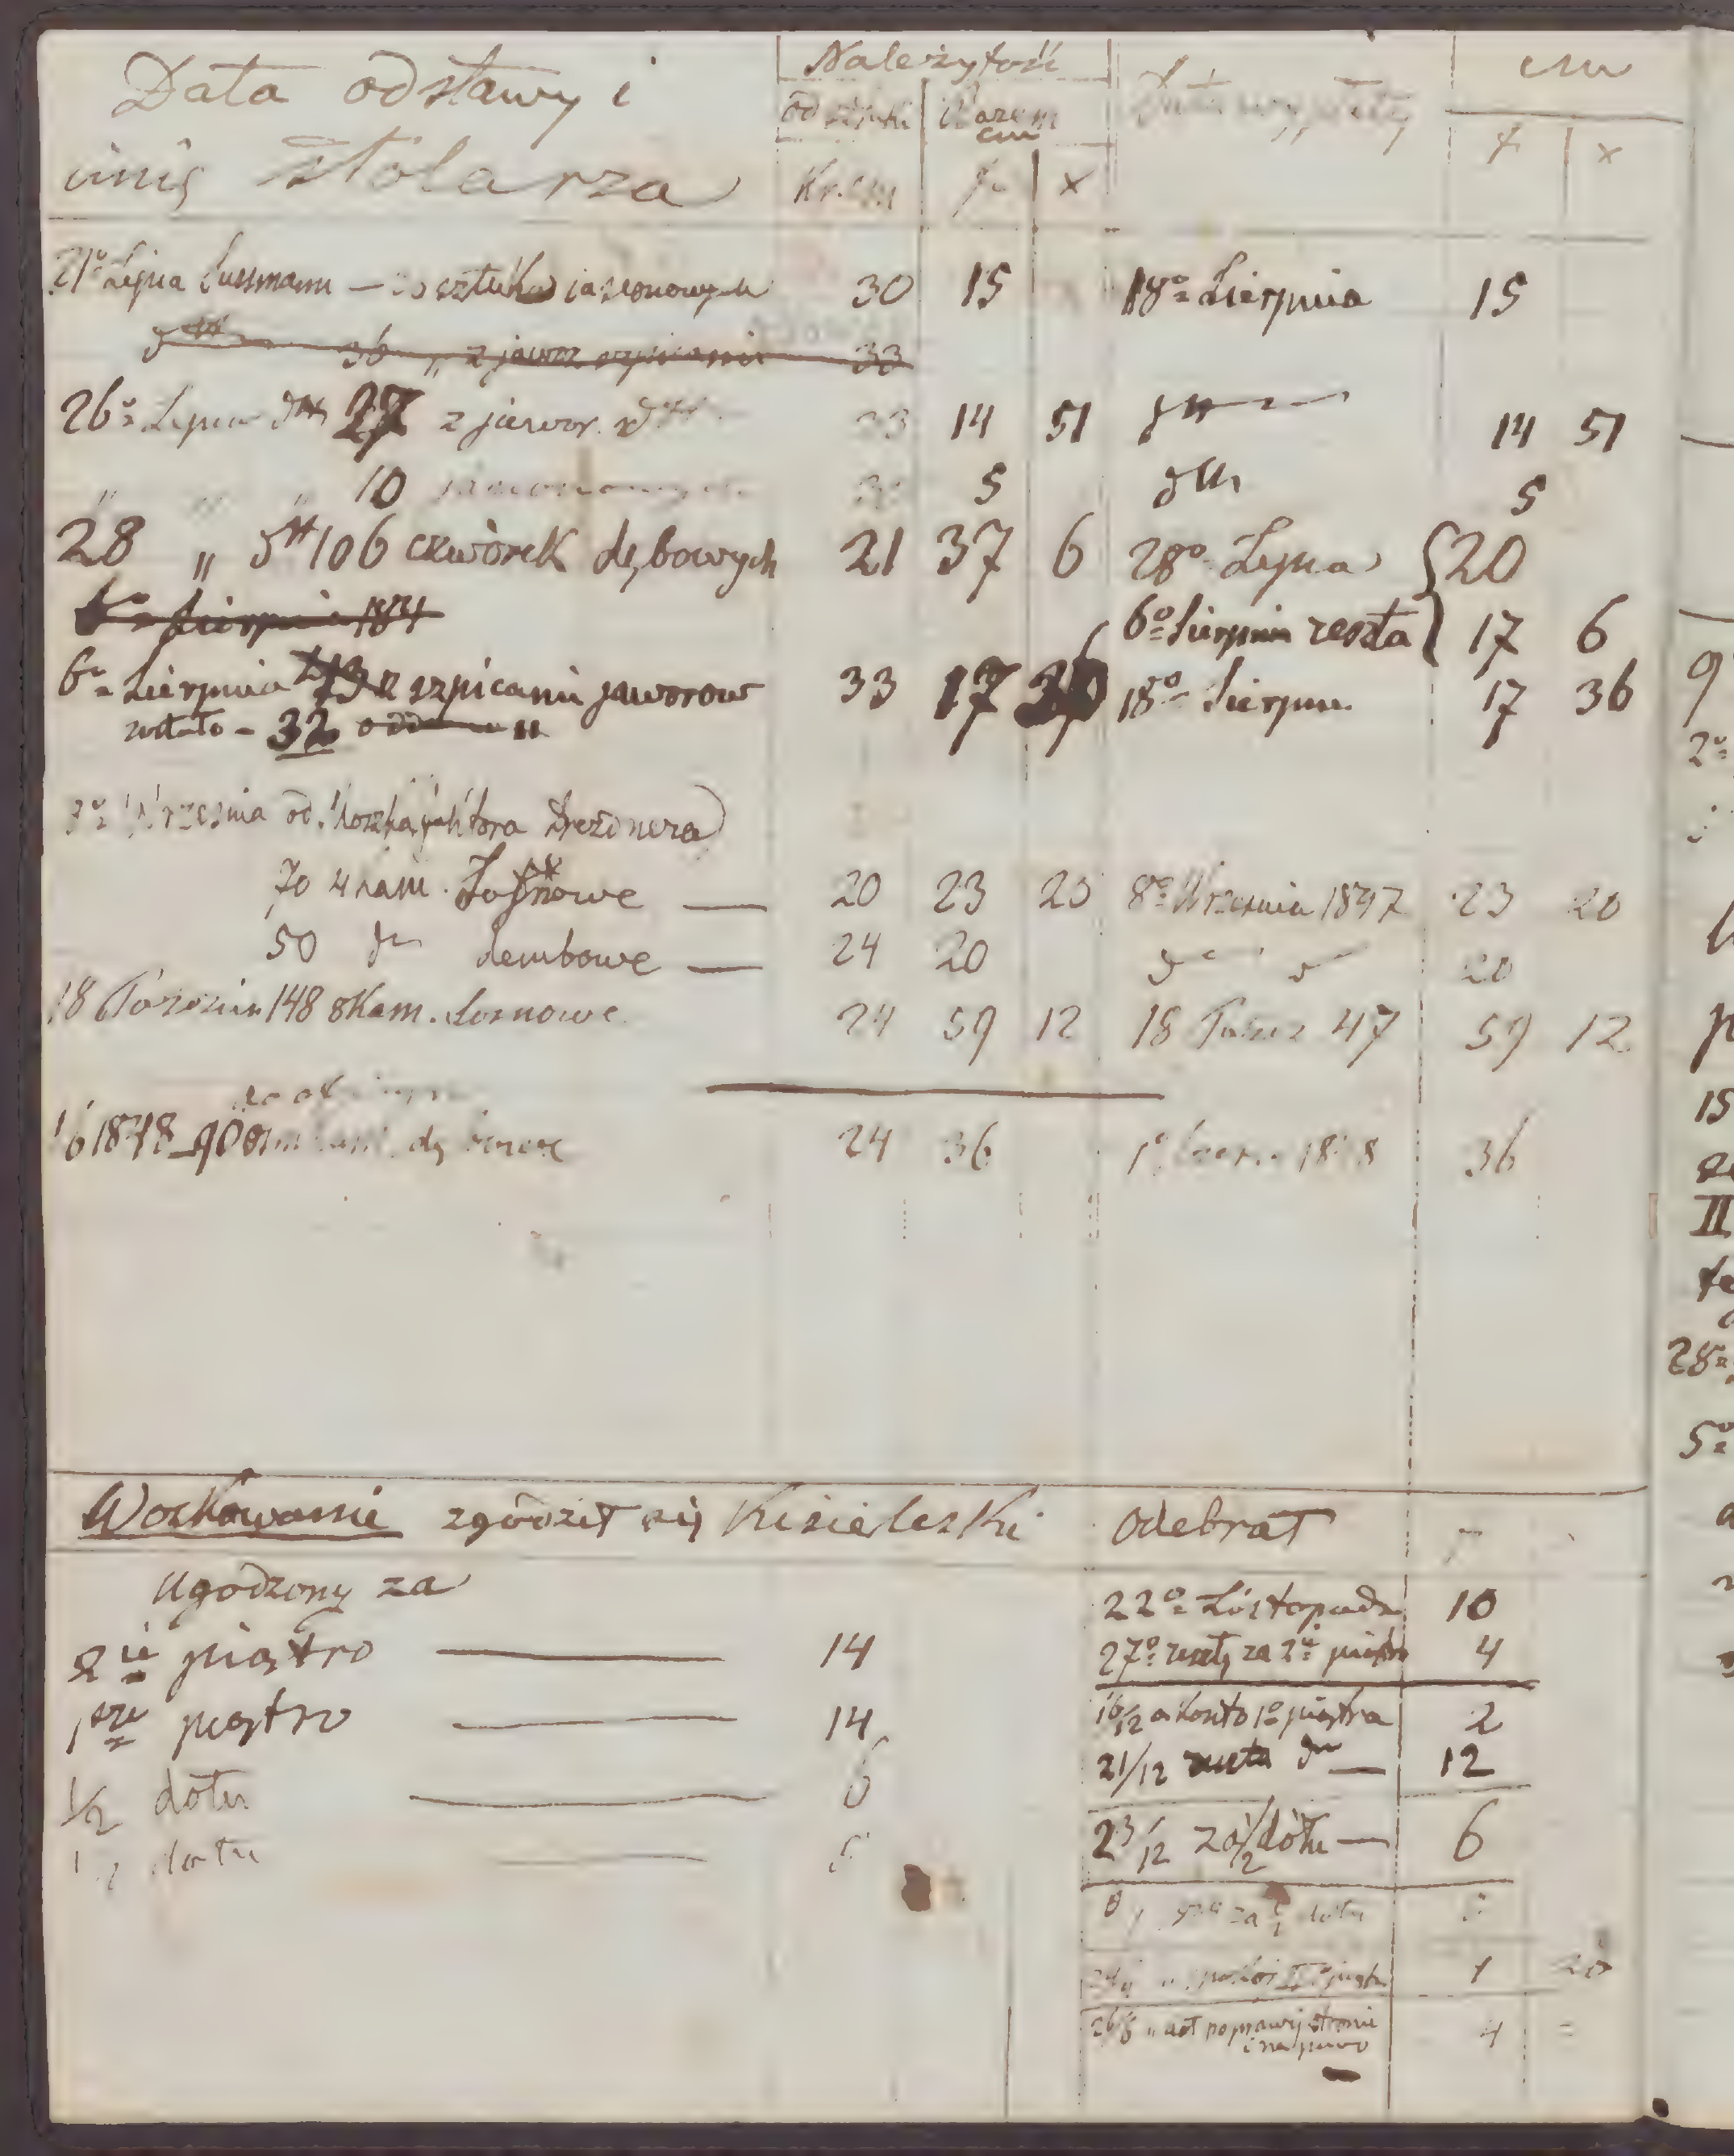 Data odstawy i
imię stolarza
Należytość
od sztuki Razem
cm
Kr. cm f x
Data wypłaty
cm
f x
21º Lipca Sussmann — 30 sztuków jasionowych 30 15 18º Sierpnia 15
dtto 36 " z jawor szpicami 33
26º Lipca dtto 27 z jawor. dtto 33 14 51 dtto 14 51
" " " 10 jasionowych 30 5 dtto 5
28 " dtto 106 czwórek dębowych 21 37 6 28º Lipca 20
6º Sierpnia 184
6º Sierpnia reszta 17 6
6º Sierpnia z szpicami jaworow 33 17 36 18º Sierpnia 17 36
zostało - 32
3º Września od Dreznera
70 4 kam. Sosnowe — 20 23 20 8º Września 1847 23 20
50 dto dembowe — 24 20 dto 20
18 Paździer 148 8kam. sosnowe 24 59 12 18 Paźdz 47 59 12
1/6 1848 90 dębowe 24 36 1º Czer. 1848 36
Woskowanie zgodził się Kisieleski odebrał f
Ugodzony za
2ie piątro — 14
1sze piątro — 14
1/2 dołu — 6
1/2 dołu — 5
22º Listopada 10
27º resztę za 2ie piątro 4
16/12 a konto 1º piątra 2
21/12 reszta dto — 12
23/12 za 1/2 dołu — 6
za 1/2 dołu 5
pokój II piątr 1 20
26/8 " poprawę stronie
i na piwo 4 =